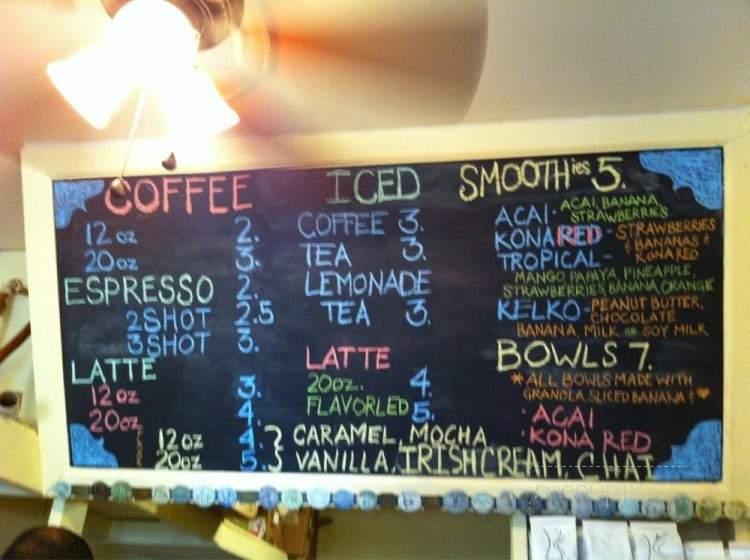 COFFEE
12 oz 2.
20oz 3.
ESPRESSO 2.
2 SHOT 2.5
3 SHOT 3.
LATTE
12 oz 3.
20oz 4.
12 oz 4.
20oz 5.
CARAMEL, MOCHA
VANILLA, IRISH CREAM, CHAI
ICED
COFFEE 3.
TEA 3.
LEMONADE
TEA 3.
LATTE
20oz. 4.
FLAVORLED 5.
SMOOTHies 5.
ACAI - ACAI, BANANA,
STRAWBERRIES
KONARED - STRAWBERRIES
& BANANAS &
KONARED
TROPICAL -
MANGO PAPAYA, PINEAPPLE,
STRAWBERRIES BANANA, ORANGE
KELKO - PEANUT BUTTER,
CHOCOLATE
BANANA, MILK or SOY MILK
BOWLS 7.
*ALL BOWLS MADE WITH
GRANOLA SLICED BANANA & ♥
· ACAI
· KONA RED